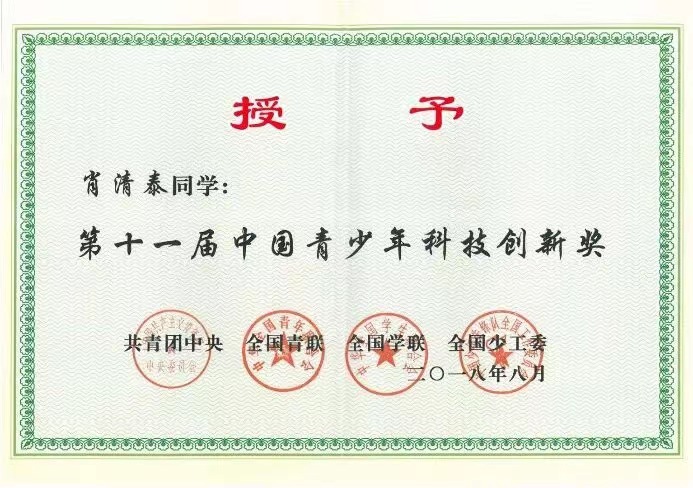 授 予
肖清泰同学：
第十一届中国青少年科技创新奖
共青团中央 全国青联 全国学联 全国少工委
二〇一八年八月